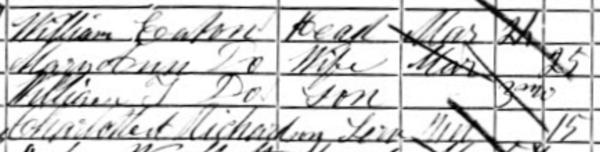 William Eaton Head Mar 24
Mary Ann Do Wife Mar 25
William T Do Son 3 mo
Charlotte Richardson Serv 15